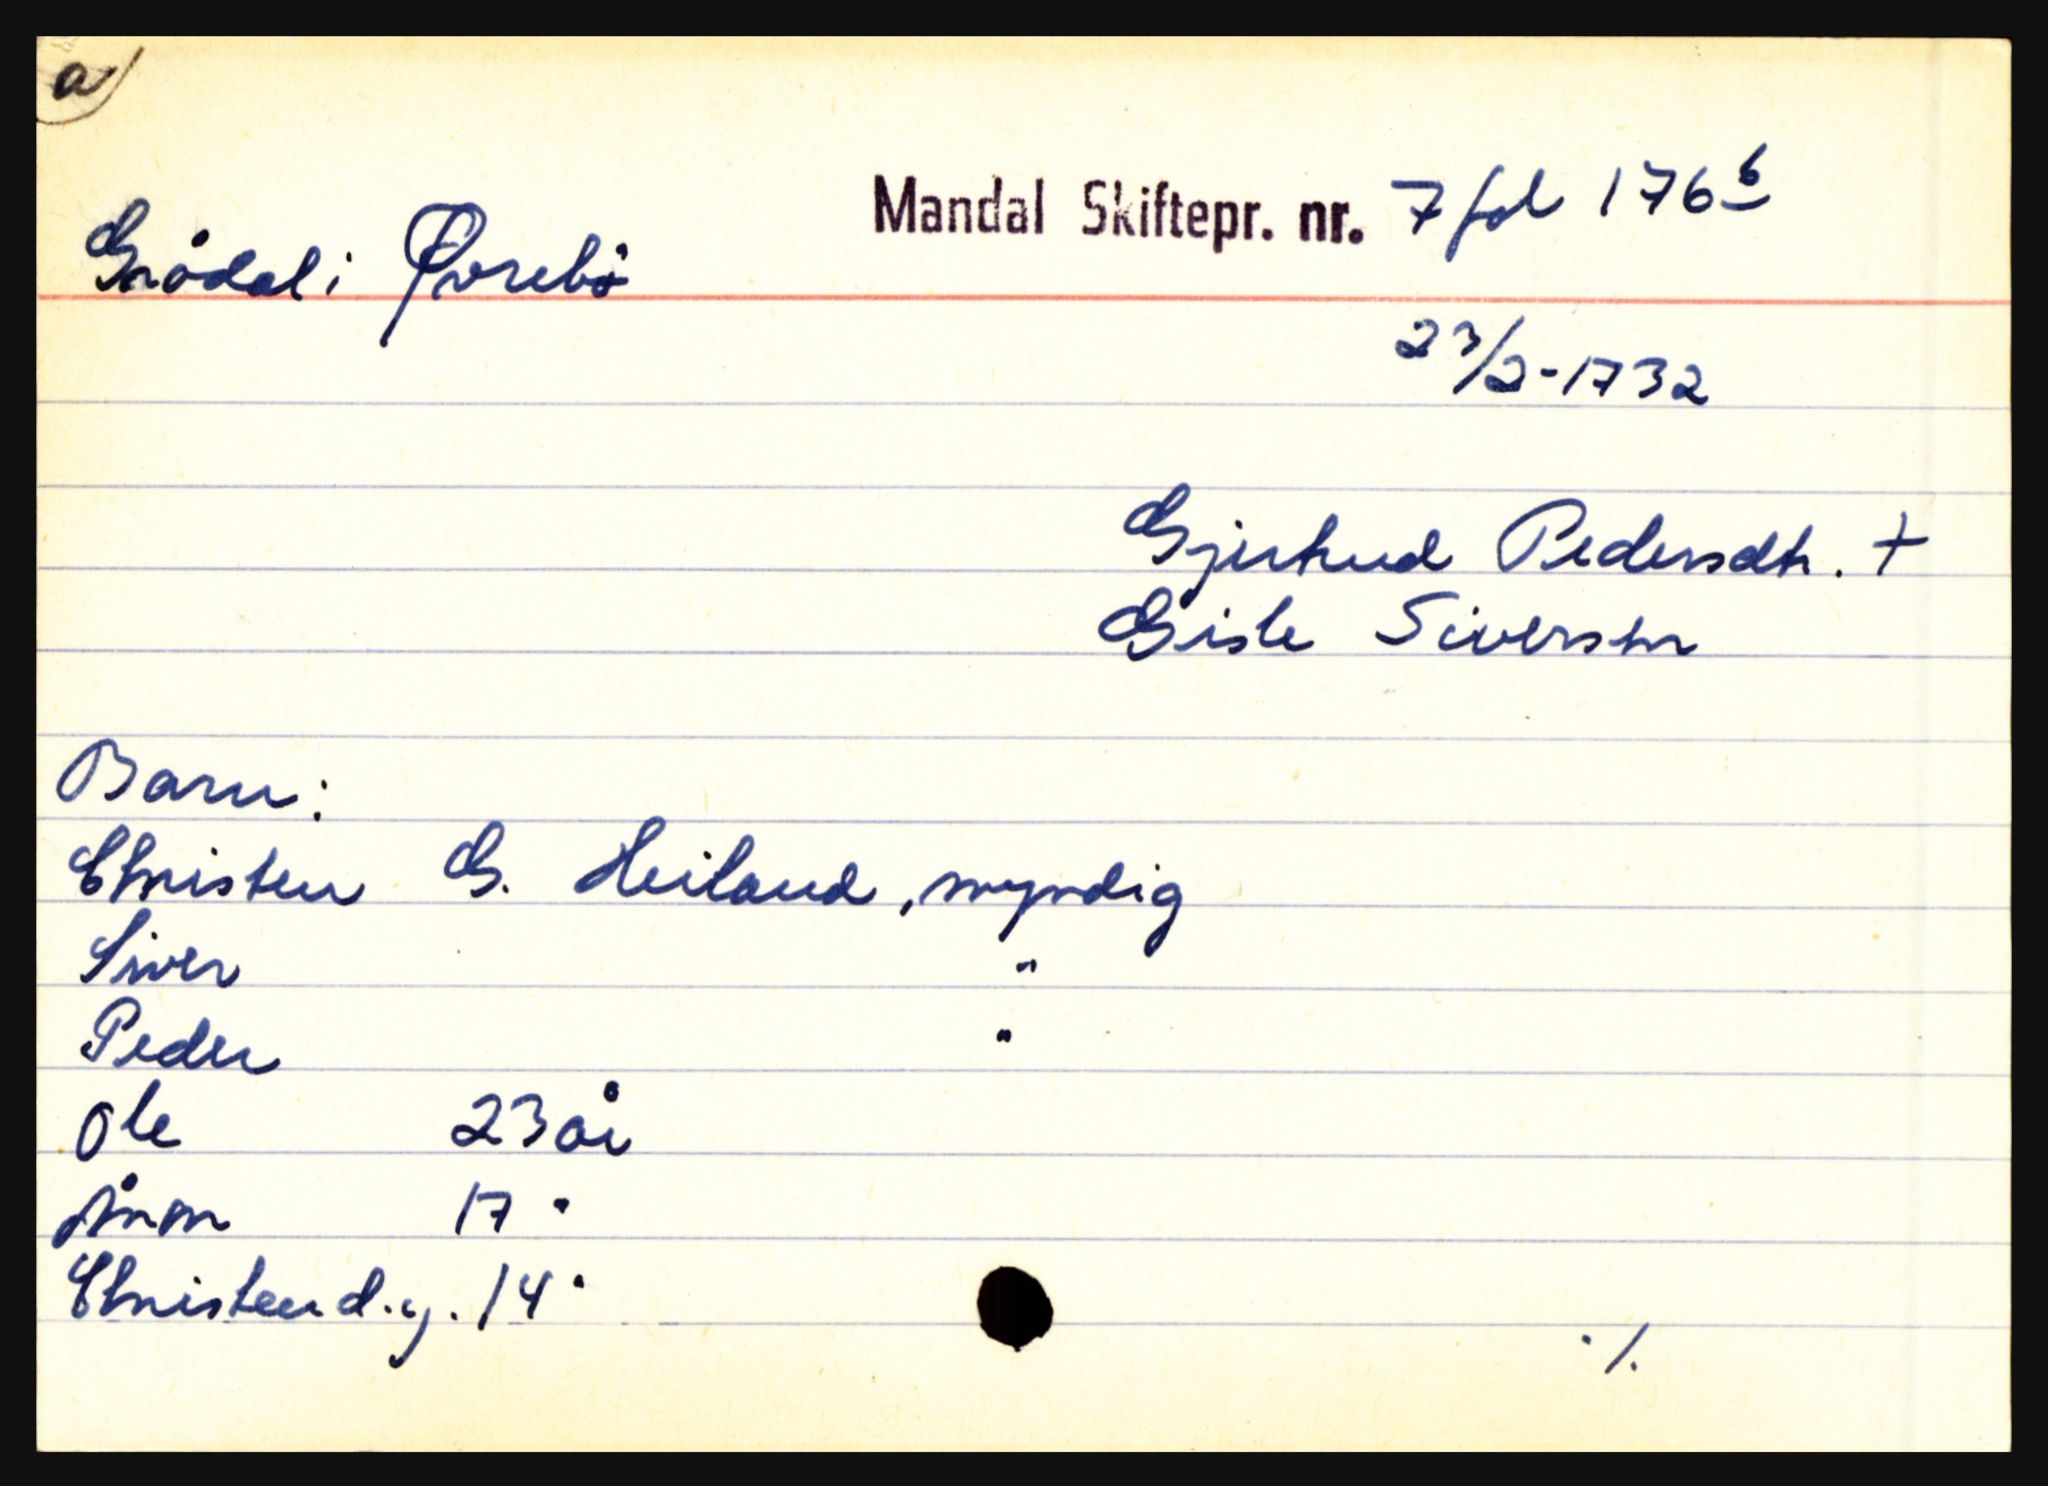 a
Mandal Skiftepr. nr. 7 fol 176 b
Grådal i Øvrebø
23/2-1732
Gjertrud Pedersdtr. +
Gisle Siversen
Barn:
Christen G. Heiland, myndig
Siver "
Peder "
Ole 23 år
Ånen 17 "
Christen d.y. 14 "
./.